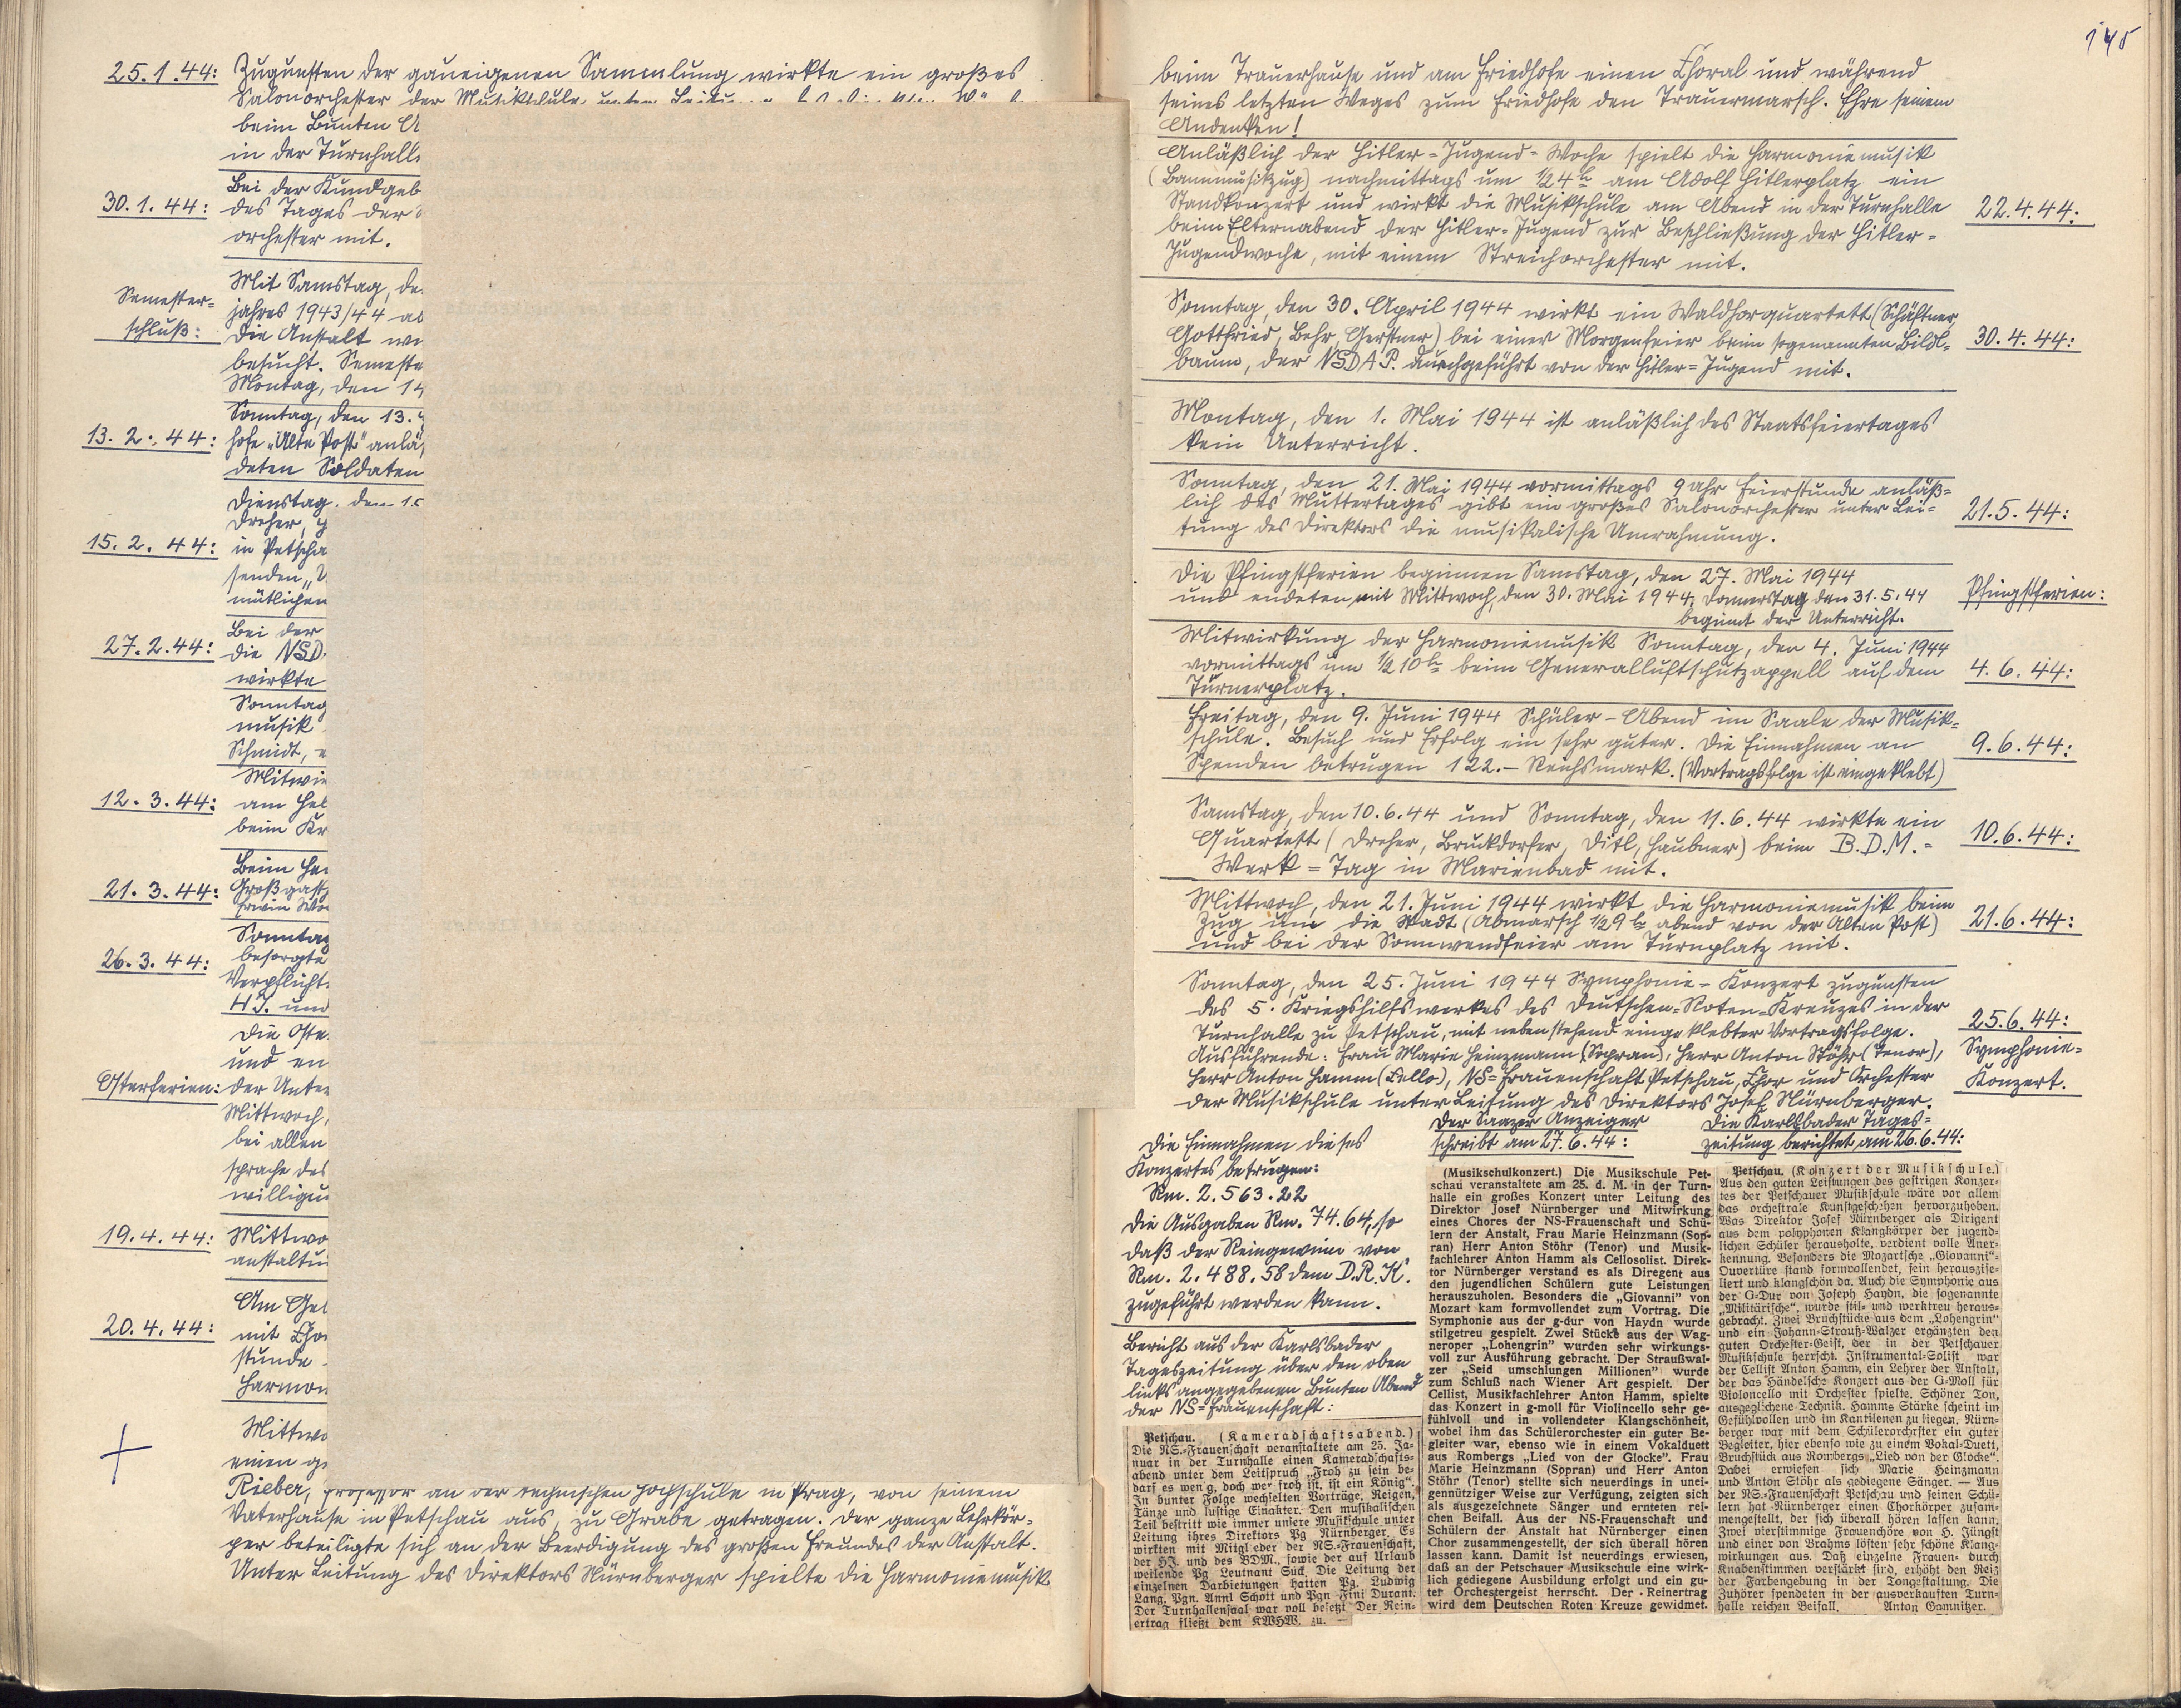 25.1.44: Zugunsten der gaueigenen Sammlung wirkte ein großes
Salonorchester der Musikschule unter
beim Bunten A
in der Turnhalle
30.1.44:
Bei der Kundgeb
des Tages der
orchester mit.
Semester-
schluß:
Mit Samstag, de
jahres 1943/44 ab
Die Anstalt wu
besucht. Semeste
Montag, den 14
13.2.44:
Sonntag, den 13.
hofe „Alte Post" anlä
deten Soldaten
15.2.44:
Dienstag, den 15
Dreher,
in Petscha
senden „
mütlichen
27.2.44:
Bei der
die NSD
wirkte
Sonntag
musik
Schmidt,
12.3.44:
Mitwir
am Hel
beim Kr
21.3.44:
Beim He
Großgast
Erwin
26.3.44:
Sonntag
besorgte
Verpflicht
HJ. und
Osterferien:
Die Oste
und en
der Unter
Mittwoch,
bei allen
sprache des
willigu
19.4.44:
Mittwo
anstaltu
20.4.44:
Am Ge
mit Cho
stunde
Harmon
Mittwo
einen g
Rieber, Professor an der technischen Hochschule in Prag, von seinem
Vaterhause in Petschau aus, zu Grabe getragen. Der ganze Lehrkör-
per beteiligte sich an der Beerdigung des großen Freundes der Anstalt.
Unter Leitung des Direktors Nürnberger spielte die Harmoniemusik
145
beim Trauerhause und am Friedhofe einen Choral und während
seines letzten Weges zum Friedhofe den Trauermarsch. Ehre seinem
Andenken!
Anläßlich der Hitler-Jugend-Woche spielt die Harmoniemusik
(Bannmusikzug) nachmittags um ½4h am Adolf Hitlerplatz ein
Standkonzert und wirkt die Musikschule am Abend in der Turnhalle
beim Elternabend der Hitler-Jugend zur Beschließung der Hitler-
Jugendwoche, mit einem Streichorchester mit.
22.4.44:
Sonntag, den 30. April 1944 wirkt ein Waldhorquartett (Schäftner,
Gottfried, Behr, Gerstner) bei einer Morgenfeier beim sogenannten Bildl-
baum, der NSDAP. durchgeführt von der Hitler-Jugend mit.
30.4.44:
Montag, den 1. Mai 1944 ist anläßlich des Staatsfeiertages
kein Unterricht.
Sonntag, den 21. Mai 1944 vormittags 9 Uhr Feierstunde anläß-
lich des Muttertages gibt ein großes Salonorchester unter Lei-
tung des Direktors die musikalische Umrahmung.
21.5.44:
Die Pfingstferien beginnen Samstag, den 27. Mai 1944
und endeten mit Mittwoch, den 30. Mai 1944, Donnerstag den 31.5.44
beginnt der Unterricht.
Pfingstferien:
Mitwirkung der Harmoniemusik Sonntag, den 4. Juni 1944
vormittags um ½10h beim Generalluftschutzappell auf dem
Turnerplatz.
4.6.44:
Freitag, den 9. Juni 1944 Schüler-Abend im Saale der Musik-
schule. Besuch und Erfolg ein sehr guter. Die Einnahmen an
Spenden betrugen 122.- Reichsmark. (Vortragsfolge ist eingeklebt)
9.6.44:
Samstag, den 10.6.44 und Sonntag, den 11.6.44 wirkte ein
Quartett (Dreher, Bruckdorfer, Ditl, Haubner) beim B.D.M.-
Werk-Tag in Marienbad mit.
10.6.44:
Mittwoch, den 21. Juni 1944 wirkt die Harmoniemusik beim
Zug um die Stadt (Abmarsch ½9h abend von der Alten Post)
und bei der Sonnwendfeier am Turnplatz mit.
21.6.44:
Sonntag, den 25. Juni 1944 Symphonie-Konzert zugunsten
des 5. Kriegshilfswerkes des Deutschen-Roten-Kreuzes in der
Turnhalle zu Petschau, mit nebenstehend eingeklebter Vortragsfolge.
Ausführende: Frau Marie Heinzmann (Sopran), Herr Anton Stöhr (Tenor),
Herr Anton Hamm (Cello), NS-Frauenschaft Petschau, Chor und Orchester
der Musikschule unter Leitung des Direktors Josef Nürnberger.
25.6.44:
Symphonie-
Konzert.
Die Einnahmen dieses
Konzertes betrugen:
Rm. 2.563.22
Die Ausgaben Rm. 74.64, so
daß der Reingewinn von
Rm. 2.488.58 dem D.R.K.
zugeführt werden kann.
Bericht aus der Karlsbader
Tageszeitung über den oben
links angegebenen Bunten Abend
der NS-Frauenschaft:
Petschau. (Kameradschaftsabend.)
Die NS.-Frauenschaft veranstaltete am 25. Ja-
nuar in der Turnhalle einen Kameradschafts-
abend unter dem Leitspruch „Froh zu sein be-
darf es wenig, doch wer froh ist, ist ein König".
In bunter Folge wechselten Vorträge, Reigen,
Tänze und lustige Einakter. Den musikalischen
Teil bestritt wie immer unsere Musikschule unter
Leitung ihres Direktors Pg Nürnberger. Es
wirkten mit Mitglieder der NS.-Frauenschaft,
der HJ. und des BDM., sowie der auf Urlaub
weilende Pg Leutnant Süß. Die Leitung der
einzelnen Darbietungen hatten Pg. Ludwig
Lang, Pgn. Annl Schott und Pgn Fini Durant.
Der Turnhallensaal war voll besetzt Der Rein-
ertrag fließt dem KWHW. zu. —
Der Saazer Anzeiger
schreibt am 27.6.44:
(Musikschulkonzert.) Die Musikschule Pet-
schau veranstaltete am 25. d. M. in der Turn-
halle ein großes Konzert unter Leitung des
Direktor Josef Nürnberger und Mitwirkung
eines Chores der NS-Frauenschaft und Schü-
lern der Anstalt, Frau Marie Heinzmann (Sop-
ran) Herr Anton Stöhr (Tenor) und Musik-
fachlehrer Anton Hamm als Cellosolist. Direk-
tor Nürnberger verstand es als Diregent aus
den jugendlichen Schülern gute Leistungen
herauszuholen. Besonders die „Giovanni" von
Mozart kam formvollendet zum Vortrag. Die
Symphonie aus der g-dur von Haydn wurde
stilgetreu gespielt. Zwei Stücke aus der Wag-
neroper „Lohengrin" wurden sehr wirkungs-
voll zur Ausführung gebracht. Der Straußwal-
zer „Seid umschlungen Millionen" wurde
zum Schluß nach Wiener Art gespielt. Der
Cellist, Musikfachlehrer Anton Hamm, spielte
das Konzert in g-moll für Violincello sehr ge-
fühlvoll und in vollendeter Klangschönheit,
wobei ihm das Schülerorchester ein guter Be-
gleiter war, ebenso wie in einem Vokalduett
aus Rombergs „Lied von der Glocke". Frau
Marie Heinzmann (Sopran) und Herr Anton
Stöhr (Tenor) stellte sich neuerdings in unei-
gennütziger Weise zur Verfügung, zeigten sich
als ausgezeichnete Sänger und ernteten rei-
chen Beifall. Aus der NS-Frauenschaft und
Schülern der Anstalt hat Nürnberger einen
Chor zusammengestellt, der sich überall hören
lassen kann. Damit ist neuerdings erwiesen,
daß an der Petschauer Musikschule eine wirk-
lich gediegene Ausbildung erfolgt und ein gu-
ter Orchestergeist herrscht. Der Reinertrag
wird dem Deutschen Roten Kreuze gewidmet.
Die Karlsbader Tages-
zeitung berichtet am 26.6.44:
Petschau. (Konzert der Musikschule.)
Aus den guten Leistungen des gestrigen Konzer-
tes der Petschauer Musikschule wäre vor allem
das orchestrale Kunstgeschehen hervorzuheben.
Was Direktor Josef Nürnberger als Dirigent
aus dem polyphonen Klangkörper der jugend-
lichen Schüler herausholte, verdient volle Aner-
kennung. Besonders die Mozartsche „Giovanni"-
Ouvertüre stand formvollendet, fein herauszise-
liert und klangschön da. Auch die Symphonie aus
der G-Dur von Joseph Haydn, die sogenannte
„Militärische", wurde stil- und werktreu heraus-
gebracht. Zwei Bruchstücke aus dem „Lohengrin"
und ein Johann-Strauß-Walzer ergänzten den
guten Orchester-Geist, der in der Petschauer
Musikschule herrscht. Instrumental-Solist war
der Cellist Anton Hamm, ein Lehrer der Anstalt,
der das Händelsche Konzert aus der G-Moll für
Violoncello mit Orchester spielte. Schöner Ton,
ausgeglichene Technik. Hamms Stärke scheint im
Gefühlvollen und im Kantilenen zu liegen. Nürn-
berger war mit dem Schülerorchester ein guter
Begleiter, hier ebenso wie zu einem Vokal-Duett,
Bruchstück aus Rombergs „Lied von der Glocke".
Dabei erwiesen sich Marie Heinzmann
und Anton Stöhr als gediegene Sänger. — Aus
der NS.-Frauenschaft Petschau und seinen Schü-
lern hat Nürnberger einen Chorkörper zusam-
mengestellt, der sich überall hören lassen kann.
Zwei vierstimmige Frauenchöre von H. Jüngst
und einer von Brahms lösten sehr schöne Klang-
wirkungen aus. Daß einzelne Frauen- durch
Knabenstimmen verstärkt sind, erhöht den Reiz
der Farbengebung in der Tongestaltung. Die
Zuhörer spendeten in der ausverkauften Turn-
halle reichen Beifall. Anton Gamnitzer.